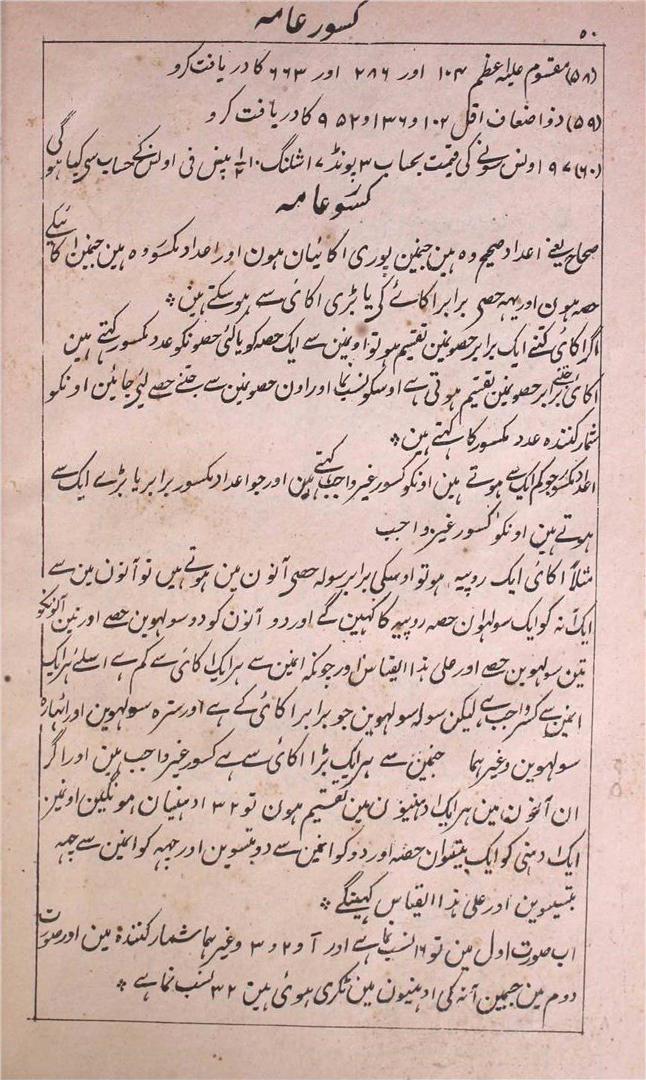 ۵۰ کسور عامہ
(۵۸) مقسوم علیہ اعظم ۱۰۴ اور ۲۸۶ اور ۶۶۳ کا دریافت کرو
(۵۹) ذو اضعاف اقل ۱۰۲ و ۱۳۶ و ۹۵۲ کا دریافت کرو
(۶۰) ۹۷ اونس سونے کی قیمت بحساب ۳ پونڈ ۱۷ شلنگ ۱۰ ۱/۲ پینس فی اونس کے حساب سی کیا ہوگی
کسور عامہ
صحاح یعنے اعداد صحیح وہ ہین جنمین پوری اکائیان ہون اور اعداد مکسر وہ ہین جنمین اکائیکے
حصہ ہون اور یہہ حصی برابر اکائے کی یا بڑی اکائی سے ہوسکتے ہین
اگر اکائی کتنے ایک برابر حصونمین تقسیم ہو تو اونمین سے ایک حصہ کو یا کئی حصونکو عدد مکسور کہتے ہین
اکائی جتنے برابر حصونمین تقسیم ہوتی ہے اوسکو نسب نما اور اون حصونمین سے جتنے حصے لیئی جائین اونکو
شمار کنندہ عدد مکسور کا کہتے ہین
اعداد مکسور جو کم ایک سے ہوتے ہین اونکو کسور غیر واجب کہتے ہین اور جو اعداد مکسور برابر یا بڑے ایک سے
ہوتے ہین اونکو کسور غیر واجب
مثلاً اکائی ایک روپیہ ہو تو اوسکی برابر سولہ حصی آنون مین ہوتے ہیں تو آنون مین سے
ایک آنہ کو ایک سولہوان حصہ روپیہ کا کہین گے اور دو آنون کو دو سولہوین حصے اور تین آنونکو
تین سولہوین حصے اور علی ہذا القیاس اور جو کہ انمین سے ہر ایک اکائی سے کم ہے اسلئے ہر ایک
انمین سے کسر واجب ہے لیکن سولہ سولہوین جو برابر اکائی کے ہے اور سترہ سولہوین اور اٹہارہ
سولہوین وغیرہما جنمین سے ہر ایک بڑا اکائی سے ہے کسور غیر واجب ہین اور اگر
ان آنون مین ہر ایک ادہنیون مین تقسیم ہون تو ۳۲ ادہنیان ہونگین اونمین
ایک ادہنی کو ایک بتیسوان حصہ اور دو کو انمین سے دو بتیسوین اور چہہ کو انمین سے چہہ
بتیسوین اور علی ہذا القیاس کہینگے
اب صورت اول مین تو ۱۶ نسب نما ہے اور ۱ و ۲ و ۳ وغیرہما شمار کنندہ ہین اور صورت
دوم مین جسمین آنہ کی ادہنیون مین ٹکری ہوئی ہین ۳۲ نسب نما ہے